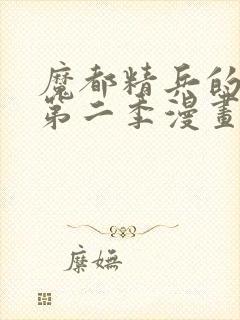 魔都精兵的
第二季漫畫
糜嫵